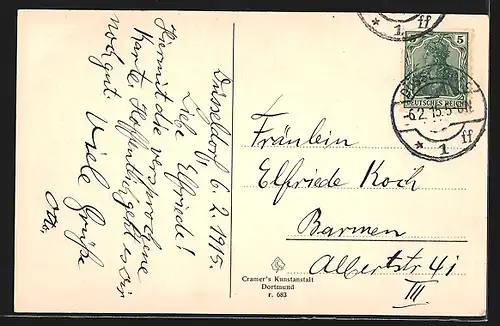 Düsseldorf 6.2.1915.
Liebe Elfriede!
Hiermit die versprochene
Karte. Hoffentlich geht es Dir
noch gut. Viele Grüße
Fräulein
Elfriede Koch
Barmen
Albertstr. 41
III
Cramer's Kunstanstalt
Dortmund
r. 683
5 5
DEUTSCHES REICH
6.2.15.5-6N.
* 1 ff
* 1 ff